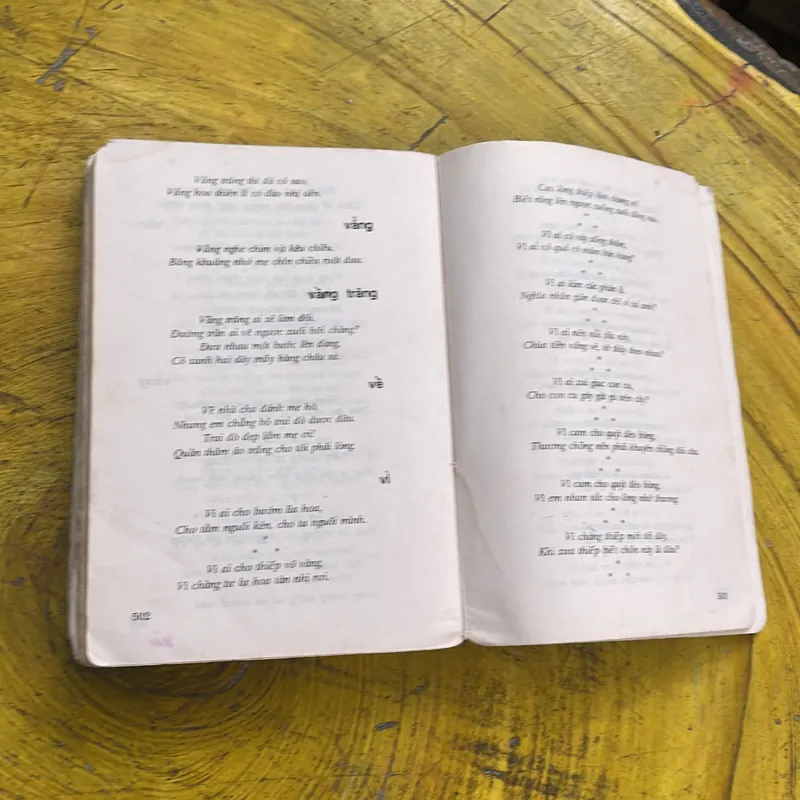 Vầng trăng thì đã có sao,
Vầng hoa thiên lí có đào nhị sen.
vẳng
Vẳng nghe chim vịt kêu chiều,
Bâng khuâng nhớ mẹ chín chiều ruột đau.
vầng trăng
Vầng trăng ai xẻ làm đôi,
Đường trần ai vẽ ngược xuôi hỡi chàng?
Đưa nhau một bước lên đàng,
Cỏ xanh hai dãy mấy hàng châu sa.
về
Về nhà cha đánh mẹ hò,
Nhưng em chẳng bỏ trai đò được đâu.
Trai đò đẹp lắm mẹ ơi!
Quần thâm áo trắng cho tôi phải lòng.
vì
Vì ai cho bướm lìa hoa,
Cho tằm người kén, cho ta người mình.
* *
*
Vì ai cho thiếp võ vàng,
Vì chàng tư lự hoa tàn nhị rơi.
502
Cực lòng thiếp lắm chàng ơi
Biết rằng lên ngược xuống xuôi đằng nào.
Vì ai có này sông thâm,
Vì ai cố quế có mâm bán hàng?
Vì ai lắm các phân li,
Vì ai nên nỗi sầu này,
Chùa tiên vắng vẻ, tớ thầy theo nhau?
Vì ai xui giục con cu,
Cho con cu gáy gật gù trên cây?
Vì cam cho quýt đèo bòng,
Thương chồng nên phải khuyên chồng đôi câu.
Vì cam cho quýt đèo bòng,
Vì em nhan sắc cho lòng nhớ thương.
Vì chàng thiếp mới tới đây,
Khi xưa thiếp biết chốn này là đâu?